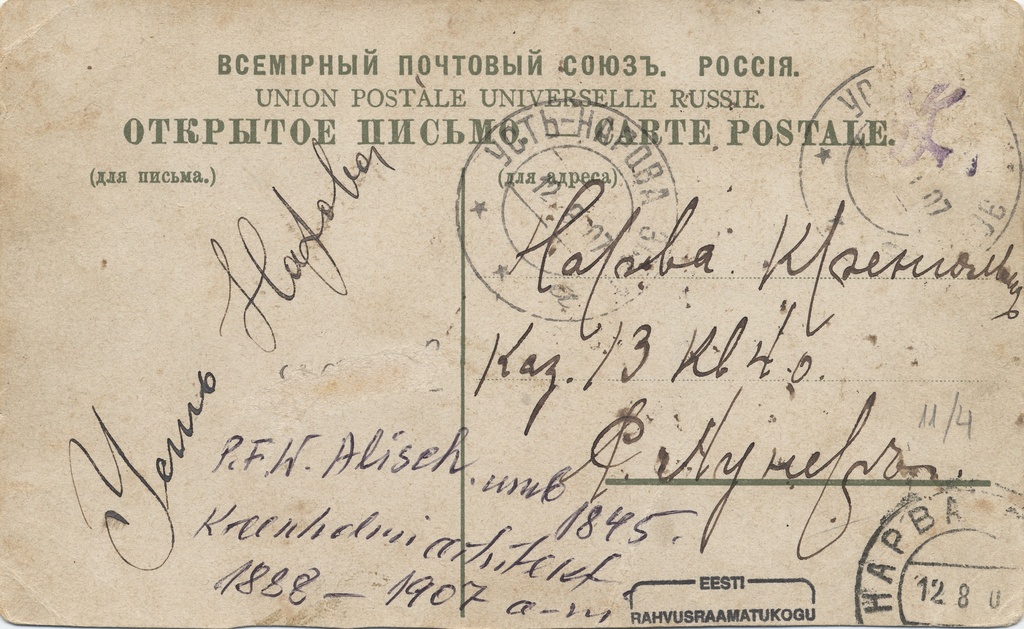 ВСЕМІРНЫЙ ПОЧТОВЫЙ СОЮЗЪ. РОССІЯ.
UNION POSTALE UNIVERSELLE RUSSIE.
ОТКРЫТОЕ ПИСЬМО. CARTE POSTALE.
(для письма.)
(для адреса)
УСТЬ-НАРОВА
12 8 07
Усть Нарова
Нарва. Кренгольмъ
Каз. 13 Кв 40.
11/4
P.F.W. Alisch
1845.
Kreenholmi arhitekt
1888 - 1907 a-ni
EESTI
RAHVUSRAAMATUKOGU
НАРВА
12 8 0